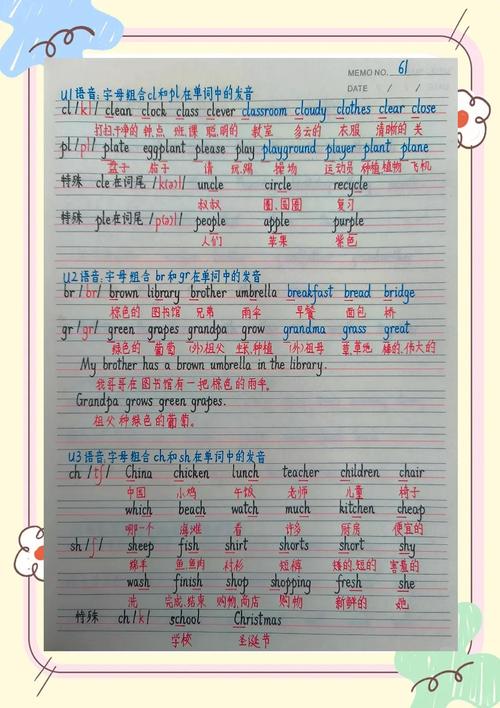 MEMO NO. 61
DATE / /
U1语音:字母组合cl和pl在单词中的发音
cl /kl/ clean clock class clever classroom cloudy clothes clear close
打扫,干净的 钟点 班,课 聪明的 教室 多云的 衣服 清晰的 关
pl /pl/ plate eggplant please play playground player plant plane
盘子 茄子 请 玩,踢 操场 运动员 种植,植物 飞机
特殊 cle在词尾/k(ə)l/ uncle circle recycle
叔叔 圈,圆圈 复习
特殊 ple在词尾/p(ə)l/ people apple purple
人们 苹果 紫色
U2语音:字母组合 br和gr在单词中的发音
br /br/ brown library brother umbrella breakfast bread bridge
棕色的 图书馆 兄弟 雨伞 早餐 面包 桥
gr /gr/ green grapes grandpa grow grandma grass great
绿色的 葡萄 (外)祖父 生长,种植 (外)祖母 草,草地 棒的,伟大的
My brother has a brown umbrella in the library.
我哥哥在图书馆有一把棕色的雨伞。
Grandpa grows green grapes.
祖父种绿色的葡萄。
U3语音:字母组合ch和sh在单词中的发音
ch /tʃ/ China chicken lunch teacher children chair
中国 小鸡 午饭 老师 儿童 椅子
which beach watch much kitchen cheap
哪一个 海滩 看 许多 厨房 便宜的
sh /ʃ/ sheep fish shirt shorts short shy
绵羊 鱼,鱼肉 衬衫 短裤 矮的,短的 害羞的
wash finish shop shopping fresh she
洗 完成,结束 购物,商店 购物 新鲜的 她
特殊 ch /k/ school Christmas
学校 圣诞节